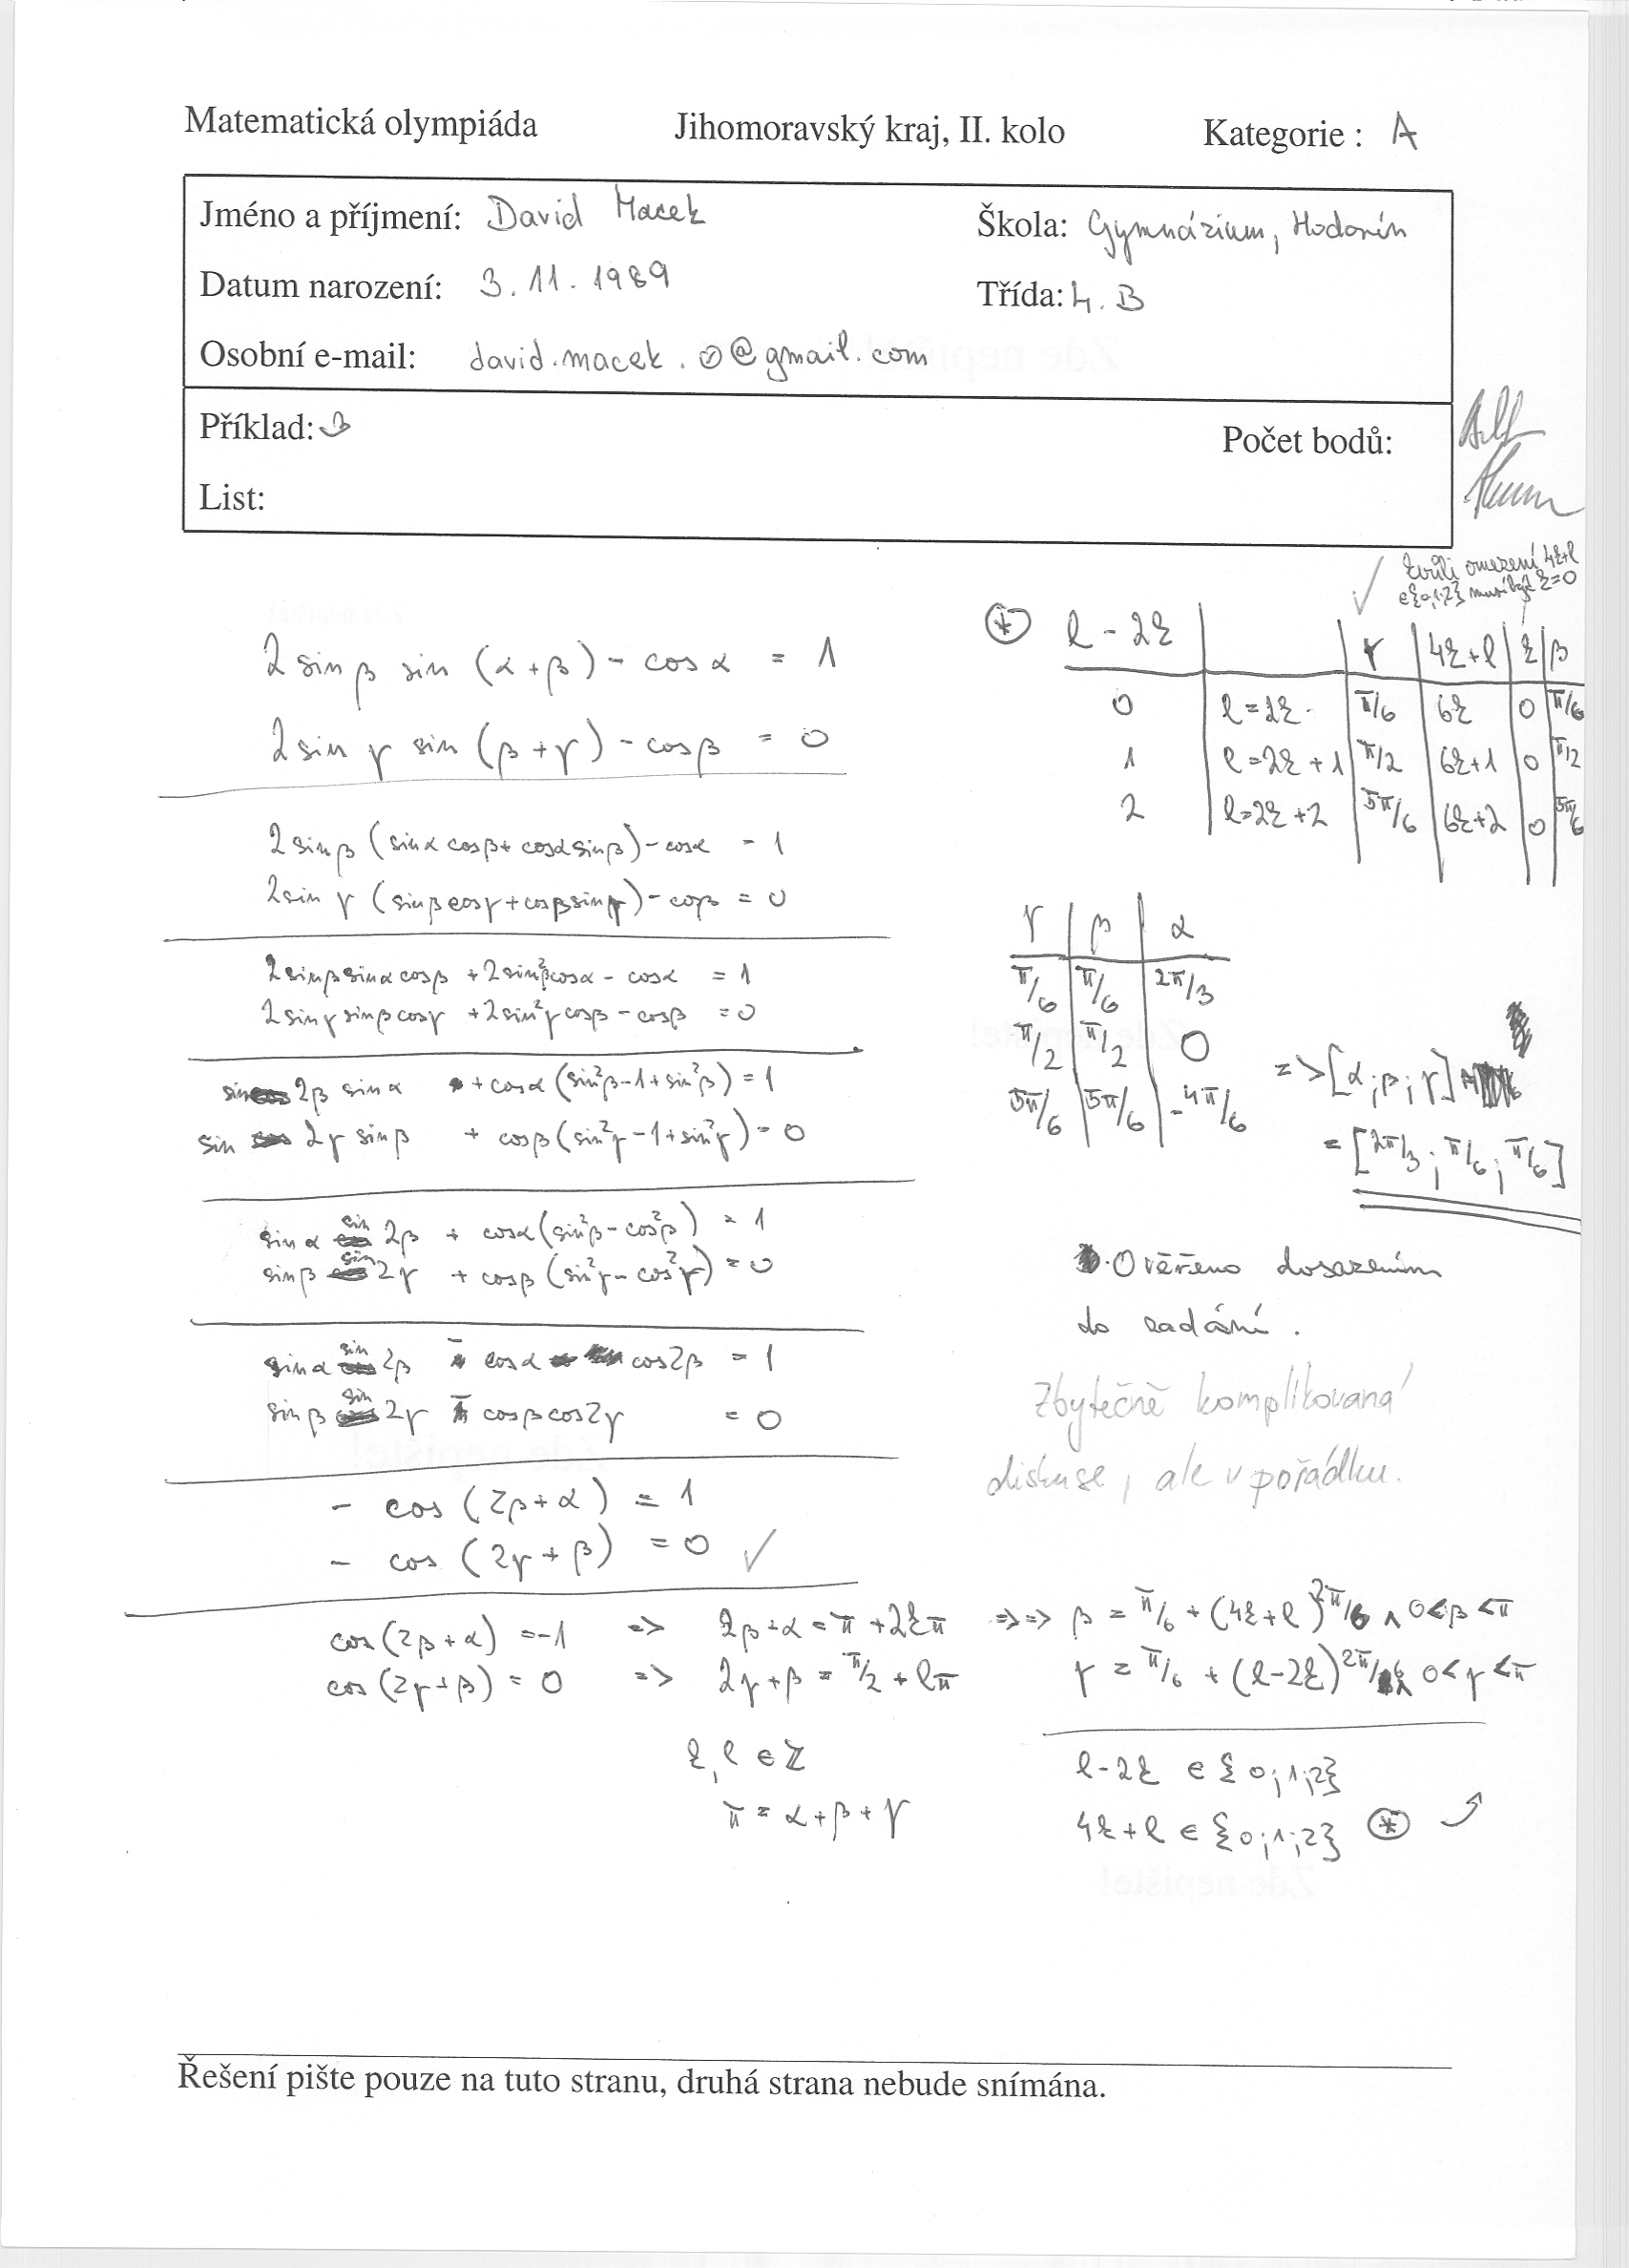 Matematická olympiáda Jihomoravský kraj, II. kolo Kategorie : A
Jméno a příjmení: David Macek Škola: Gymnázium, Hodonín
Datum narození: 3. 11. 1989 Třída: 4. B
Osobní e-mail: david.macek.0@gmail.com
Příklad: 3 Počet bodů:
List:
2 sin β sin (α+β) - cos α = 1
2 sin γ sin (β+γ) - cos β = 0
2 sin β (sin α cos β + cos α sin β) - cos α = 1
2 sin γ (sin β cos γ + cos β sin γ) - cos β = 0
2 sin β sin α cos β + 2 sin²β cos α - cos α = 1
2 sin γ sin β cos γ + 2 sin²γ cos β - cos β = 0
sin 2β sin α + cos α (sin²β - 1 + sin²β) = 1
sin 2γ sin β + cos β (sin²γ - 1 + sin²γ) = 0
sin α sin 2β + cos α (sin²β - cos²β) = 1
sin β sin 2γ + cos β (sin²γ - cos²γ) = 0
sin α sin 2β - cos α cos 2β = 1
sin β sin 2γ - cos β cos 2γ = 0
- cos (2β + α) = 1
- cos (2γ + β) = 0 ✓
cos (2β+α) = -1 => 2β+α = π + 2kπ =>=> β = π/6 + (4k+l) 2π/6 ∧ 0<β<π
cos (2γ+β) = 0 => 2γ+β = π/2 + lπ γ = π/6 + (l-2k) 2π/6 ∧ 0<γ<π
k, l ∈ Z
π = α + β + γ
l-2k ∈ {0;1;2}
4k+l ∈ {0;1;2} (*)
✓ kvůli omezení 4k+l
∈{0,1,2} musí být k=0
(*) l - 2k γ 4k+l k β
0 l=2k π/6 6k 0 π/6
1 l=2k+1 π/2 6k+1 0 π/2
2 l=2k+2 5π/6 6k+2 0 5π/6
γ β α
π/6 π/6 2π/3
π/2 π/2 0
5π/6 5π/6 -4π/6
=> [α;β;γ]
= [2π/3; π/6; π/6]
Ověřeno dosazením
do zadání.
Zbytečně komplikovaná
diskuse, ale v pořádku.
Řešení pište pouze na tuto stranu, druhá strana nebude snímána.